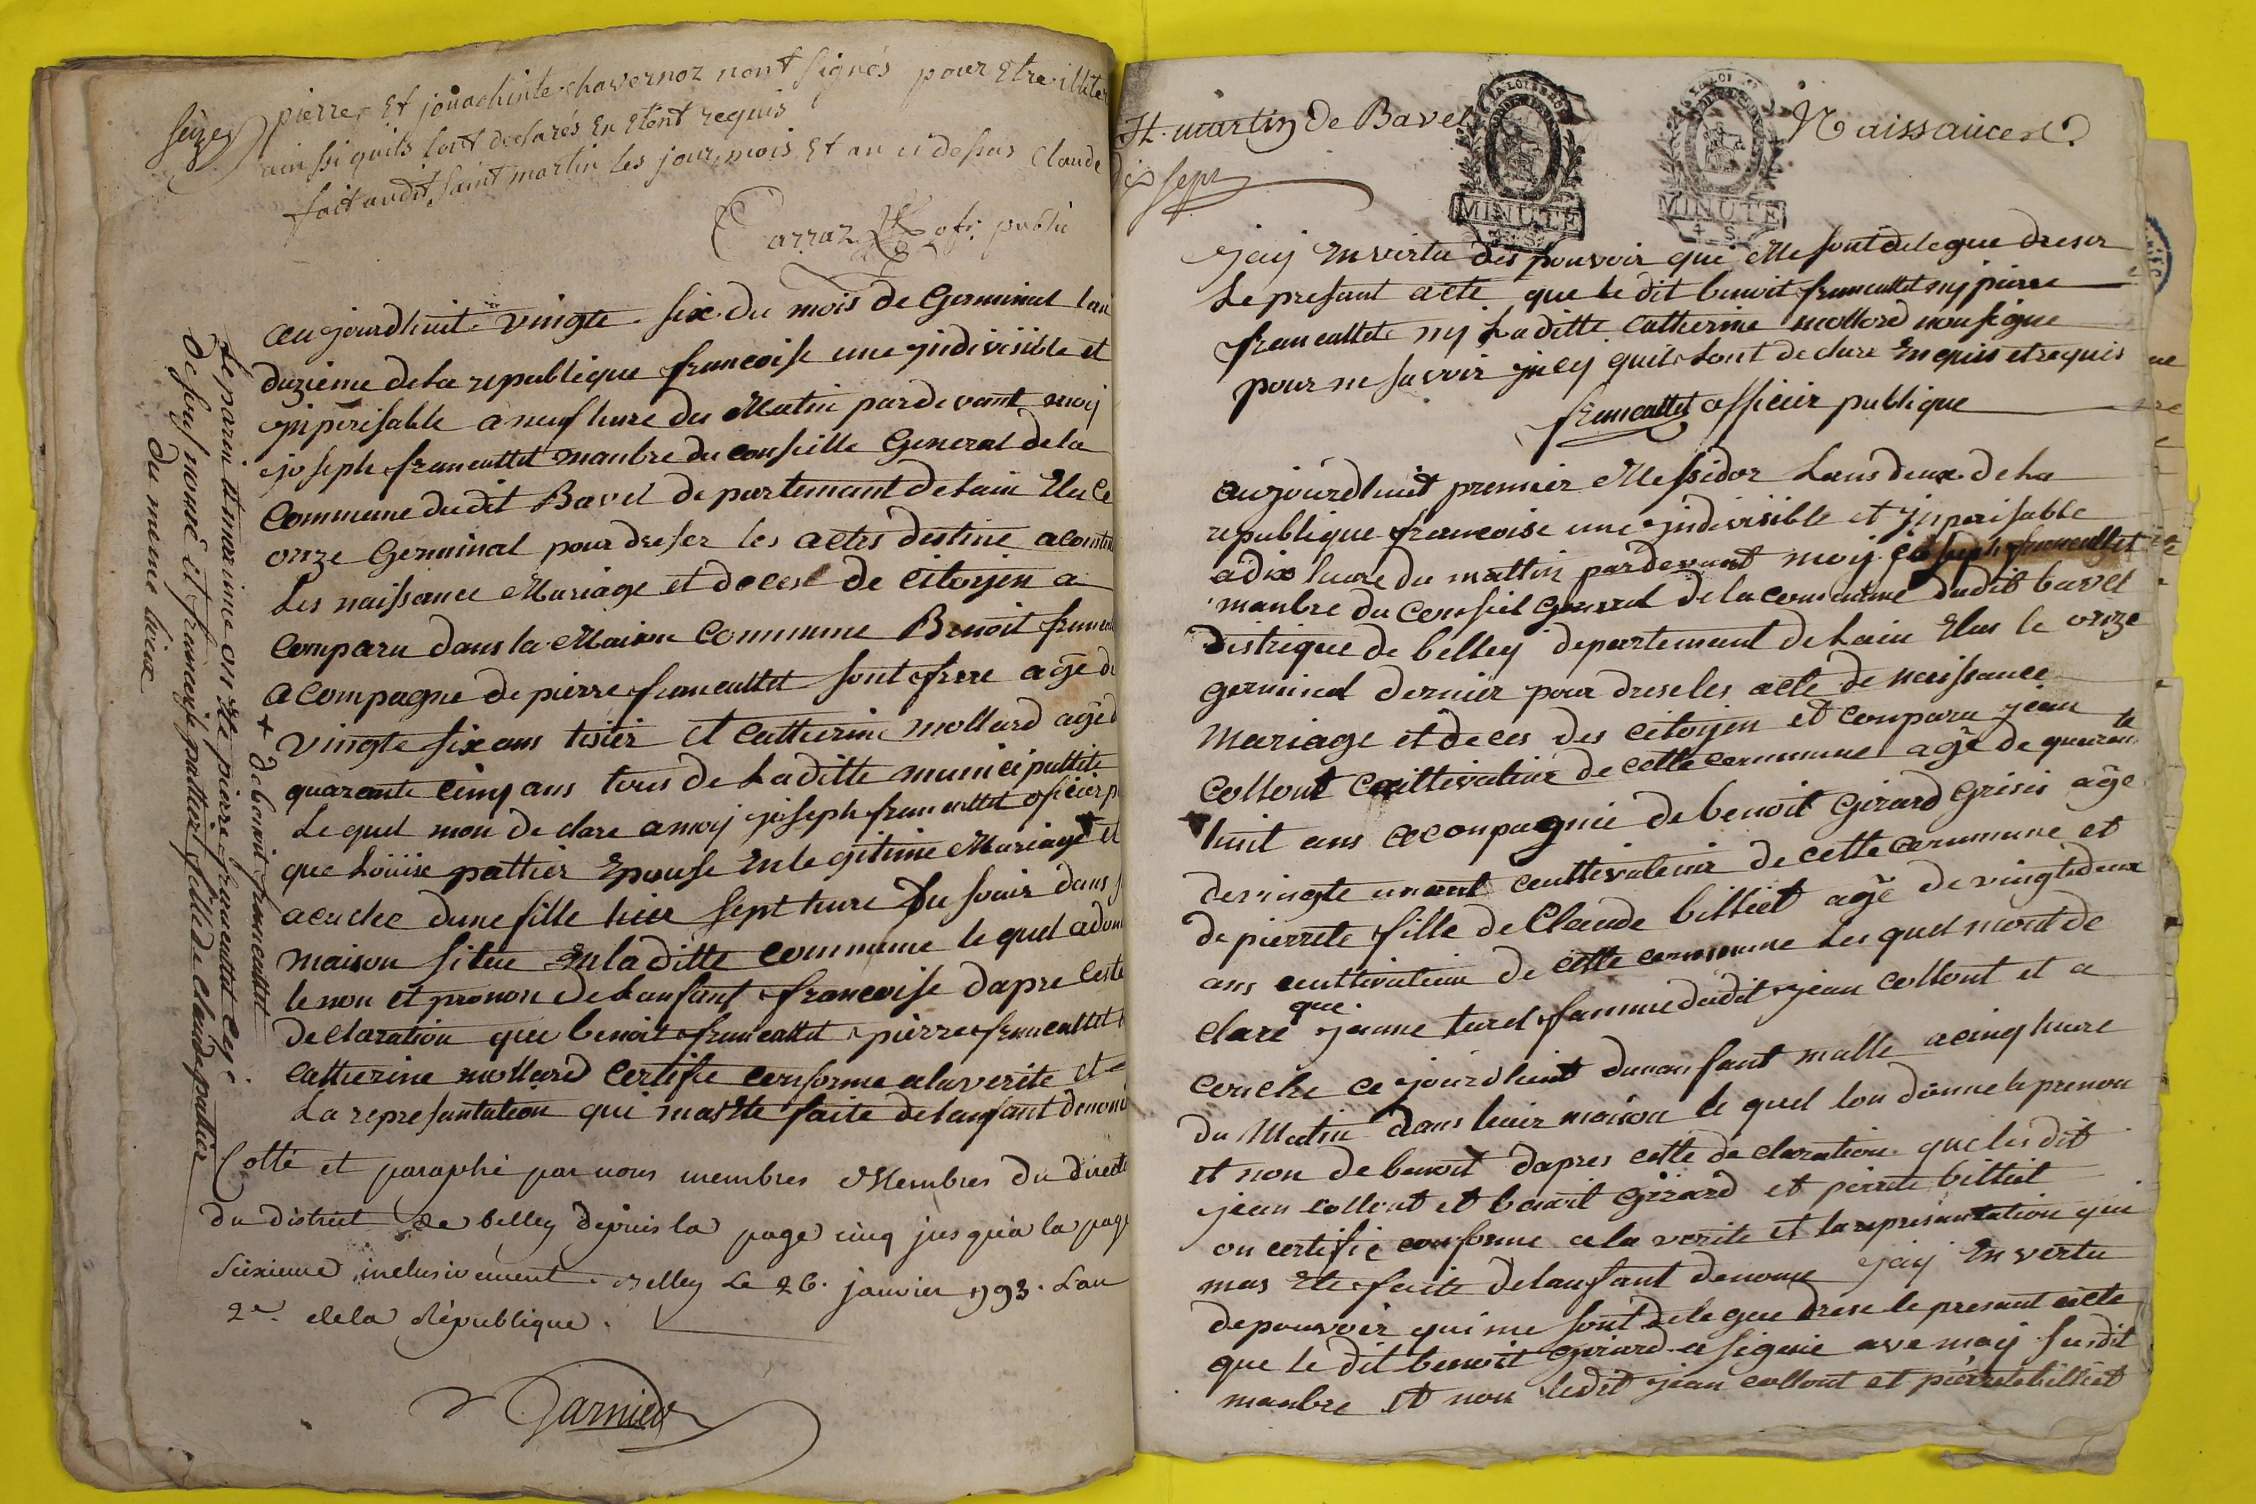 seize
pierre Et jouachinte chavernoz nont signés pour Etre illite
ain si quils lont declarés En Etent requis
fait audit saint martin les jour, mois Et an ci desus Claude
Carraz ofi public
aujourdhuit vingte six du mois de Germinal lan
duzieme de la republique francoise une jndivisible et
jnperisable a neuf hure du Matin pardevant moy
joseph francattet manbre du conseille General de la
Commune dudit Bavel departemant de Lain Elu Le
onze Germinal pour dreser les actes destine a constu
Les naissance Mariage et deces de citoyen a
comparu dans la Maison Commune Benoit francat
acompagne de pierre francattet sont frere age de
vingte six ans tisier et Catterine mollard age d
quarente cinq ans tous de Laditte municipallite
Le quel mon declare a moy joseph francattet oficier p
que Loüise pattier Epouse En legitime Mariage + et
acuchee dune fille hier sept hure Du soair dans s
maison situe En laditte commune le quel adon
le non et pronon de Lanfant francoise dapre ceste
declaration que benoit francattet pierre francattet
catterine mollard certifie conforme a la verite et
La representation qui mas Ete faite de lanfant denom
+ de benoit francattet
Le parin et marinne on Ete pierre francattet cy
desus nomé et francoise pattier fille de claude pattier
du meme lieux
Cotté et paraphé par nous membres Membres du direct
du district de belley depuis la page cinq jusqua la page
Seizieme inclusivement. Belley Le 26. janvier 1793. Lan
2e. de la République.
Garnier
St. martin de Bavel
dix sept
LA LOI
MINUTE
4. S.
LA LOI
MINUTE
4. S.
Naissances
jay En virtu des pouvoir que Me sont delegue dreser
Le presant acte que le dit benoit francattet ny pierre
francattete ny Laditte catherine mollard non signe
pour ne savoir jncy quils Lont declare Enquis et requis
francattet officier publique
aujourdhuit premier Messidor Lans deux de La
republique francoise une jndivisible et jnperisable
a dix heure du mattin pardevant moy joseph francattet
manbre du Conseil general de la commune dudit bavel
distrique de belley departement de Lain Elus le onze
germinal dernier pour drese les acte de naissance
Mariage et deces des citoyen et conparu jean
Collont cultivateur de cette commune age de quarante
huit ans acconpagnie de benoit Girard Grisis age
de vingte un ant cultivateur de cette commune et
de pierrete fille de Claude billiet age de vingtedeux
ans cultivateur de cette commune Les quel mont de
clare que janne turel famme dudit jean collont et a
couche ce jourdhuit dun anfant malle a cinq hure
du Matin dans leur maison le quel lon donne le prenon
et non de benoit dapres cette declaration que les dit
jean collont et benoit Girard et pierrete billiet
on certifie conforme a la verite et la representation qui
mas Ete faite de lanfant denome jay En vertu
de pouvoir qui me sont delegue drese le presant acte
que le dit benoit girard a signie ave moy susdit
manbre et non ledit jean collont et pierrete billiet